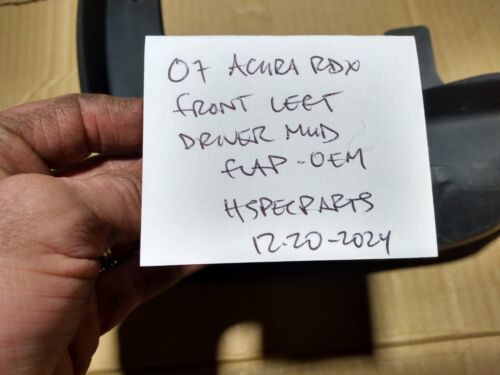 07 ACURA RDX
FRONT LEFT
DRIVER MUD
FLAP - OEM
HSPECPARTS
12-20-2024